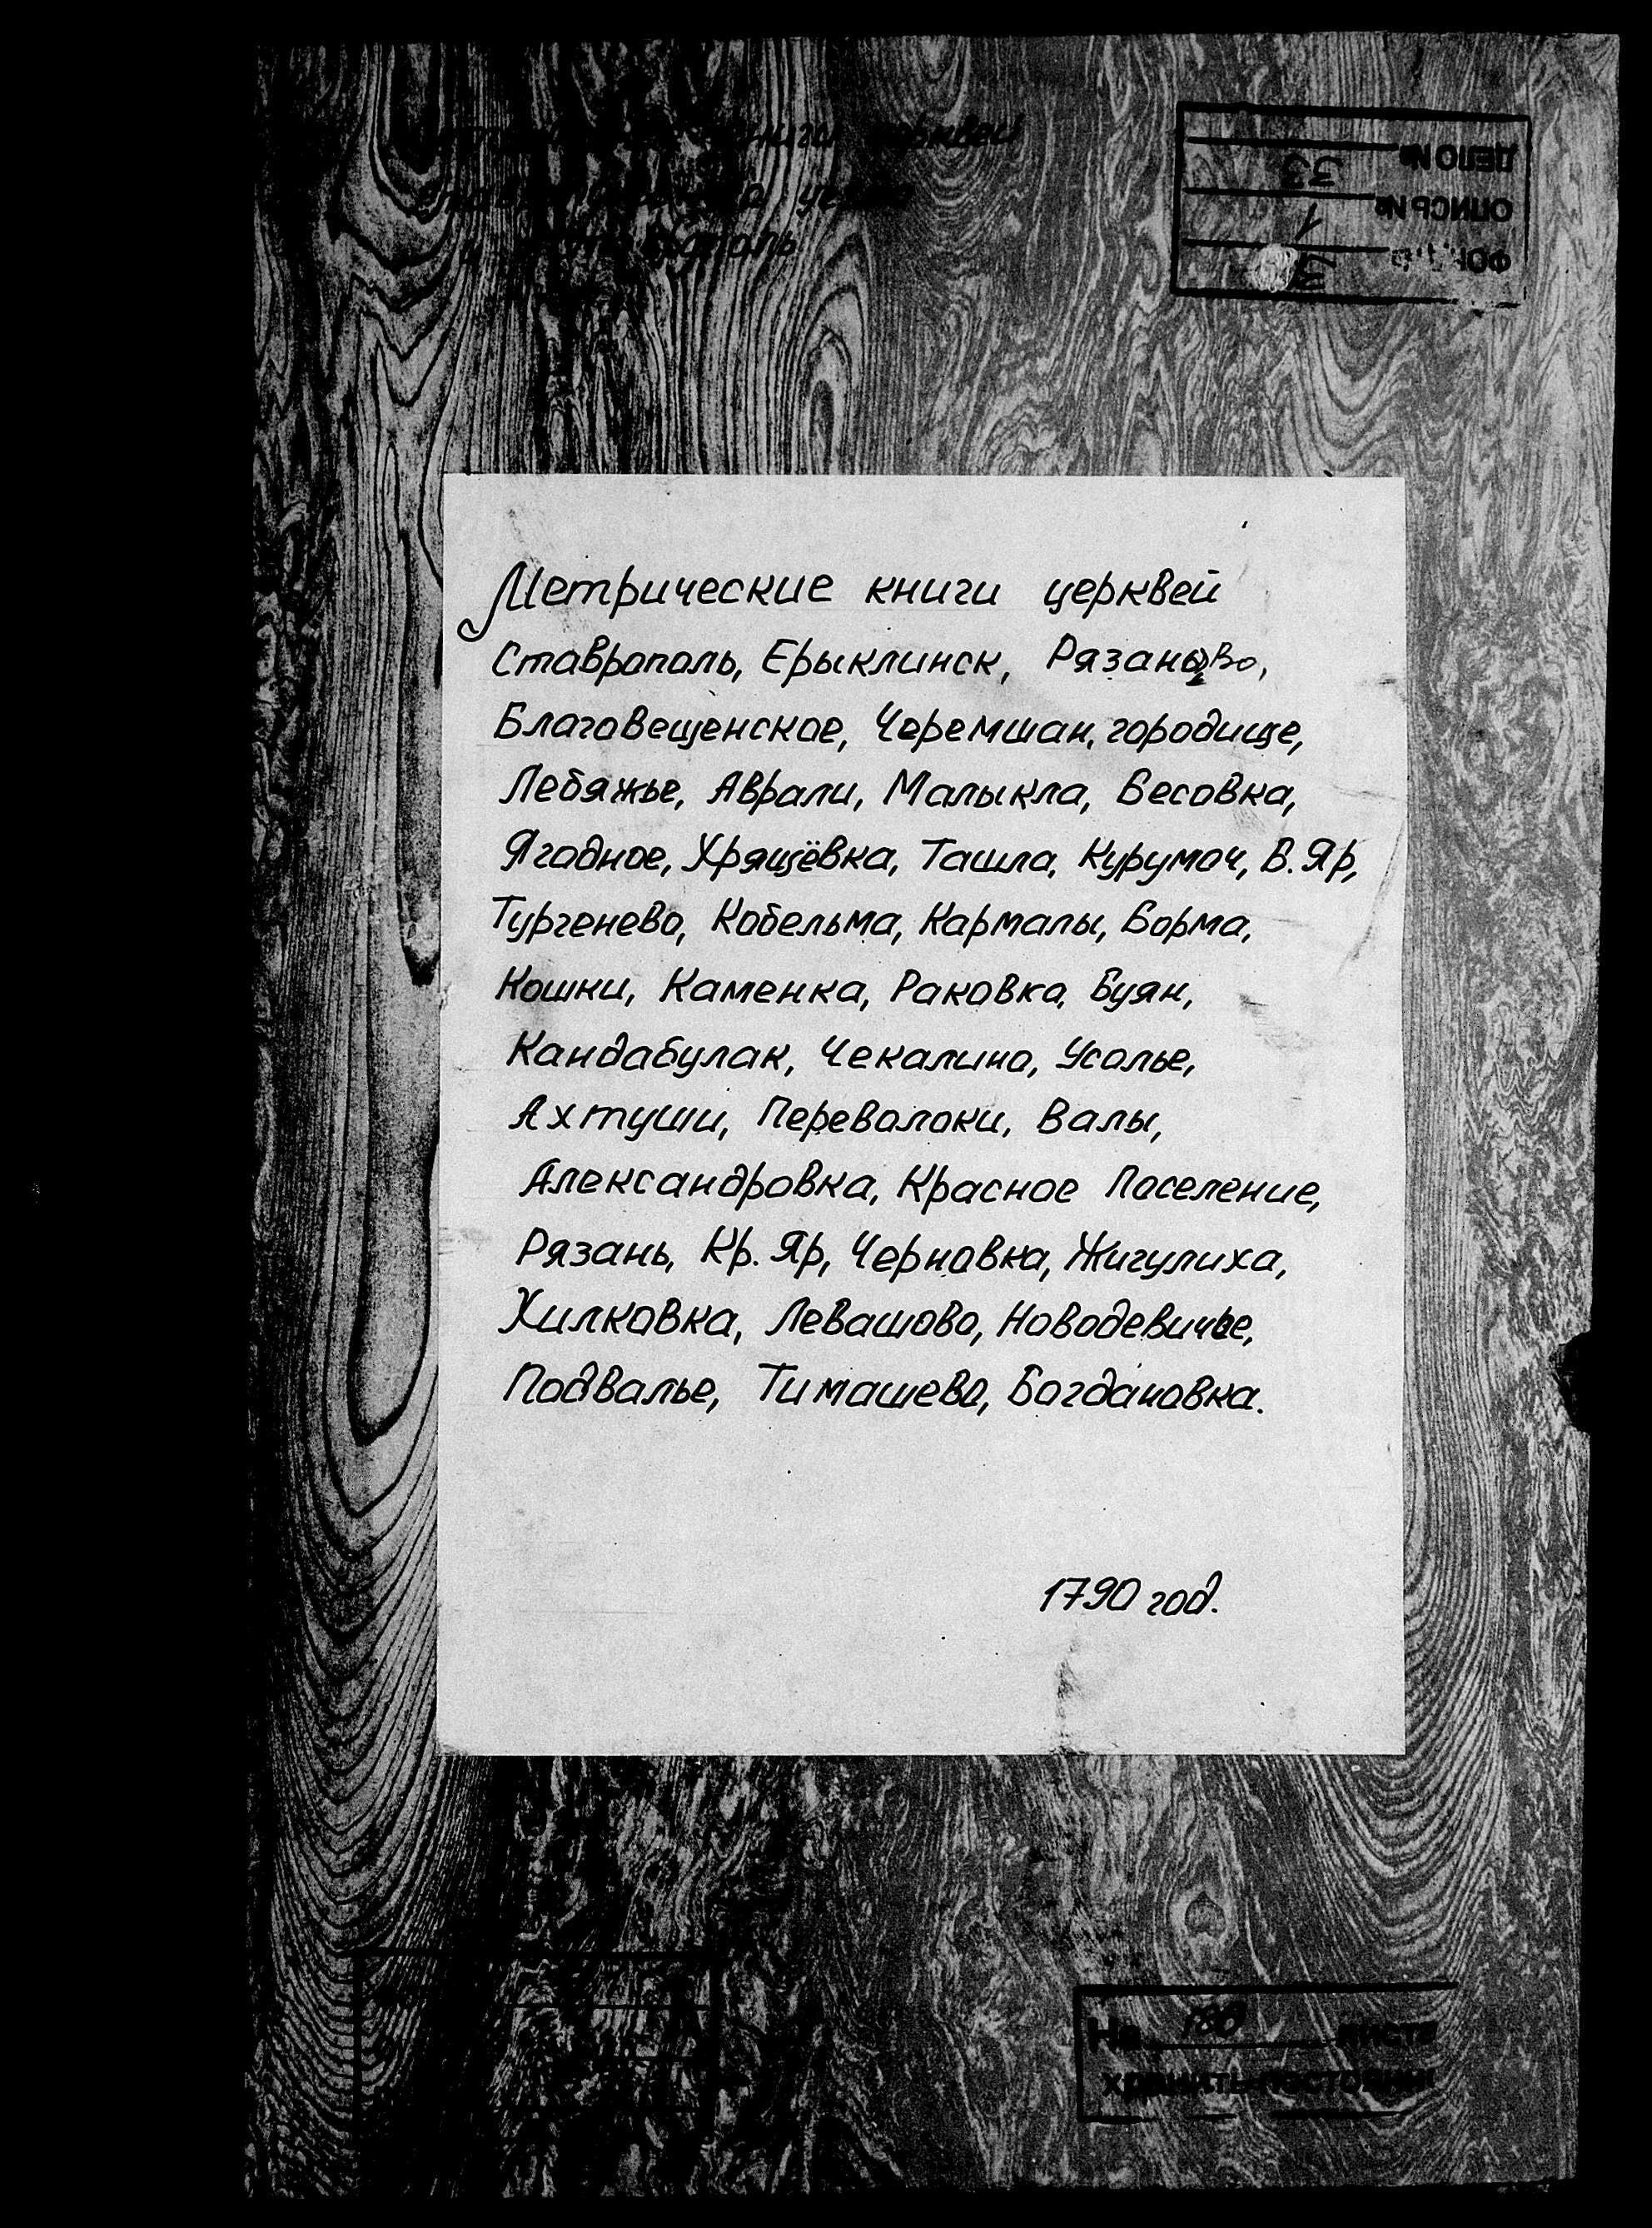 книги церквей
ДЕЛО № 33
ОПИСЬ № 1
ФОНД №
Метрические книги церквей
Ставрополь, Ерыклинск, Рязаново,
Благовещенское, Черемшан, городище,
Лебяжье, Аврали, Малыкла, Бесовка,
Ягодное, Хрящёвка, Ташла, Курумоч, В. Яр,
Тургенево, Кобельма, Кармалы, Борма,
Кошки, Каменка, Раковка, Буян,
Кандабулак, Чекалино, Усолье,
Ахтуши, Переволоки, Валы,
Александровка, Красное Поселение,
Рязань, Кр. Яр, Черновка, Жигулиха,
Хилковка, Левашово, Новодевичье,
Подвалье, Тимашево, Богдановка.
1790 год.
На листа
хранить постоянно